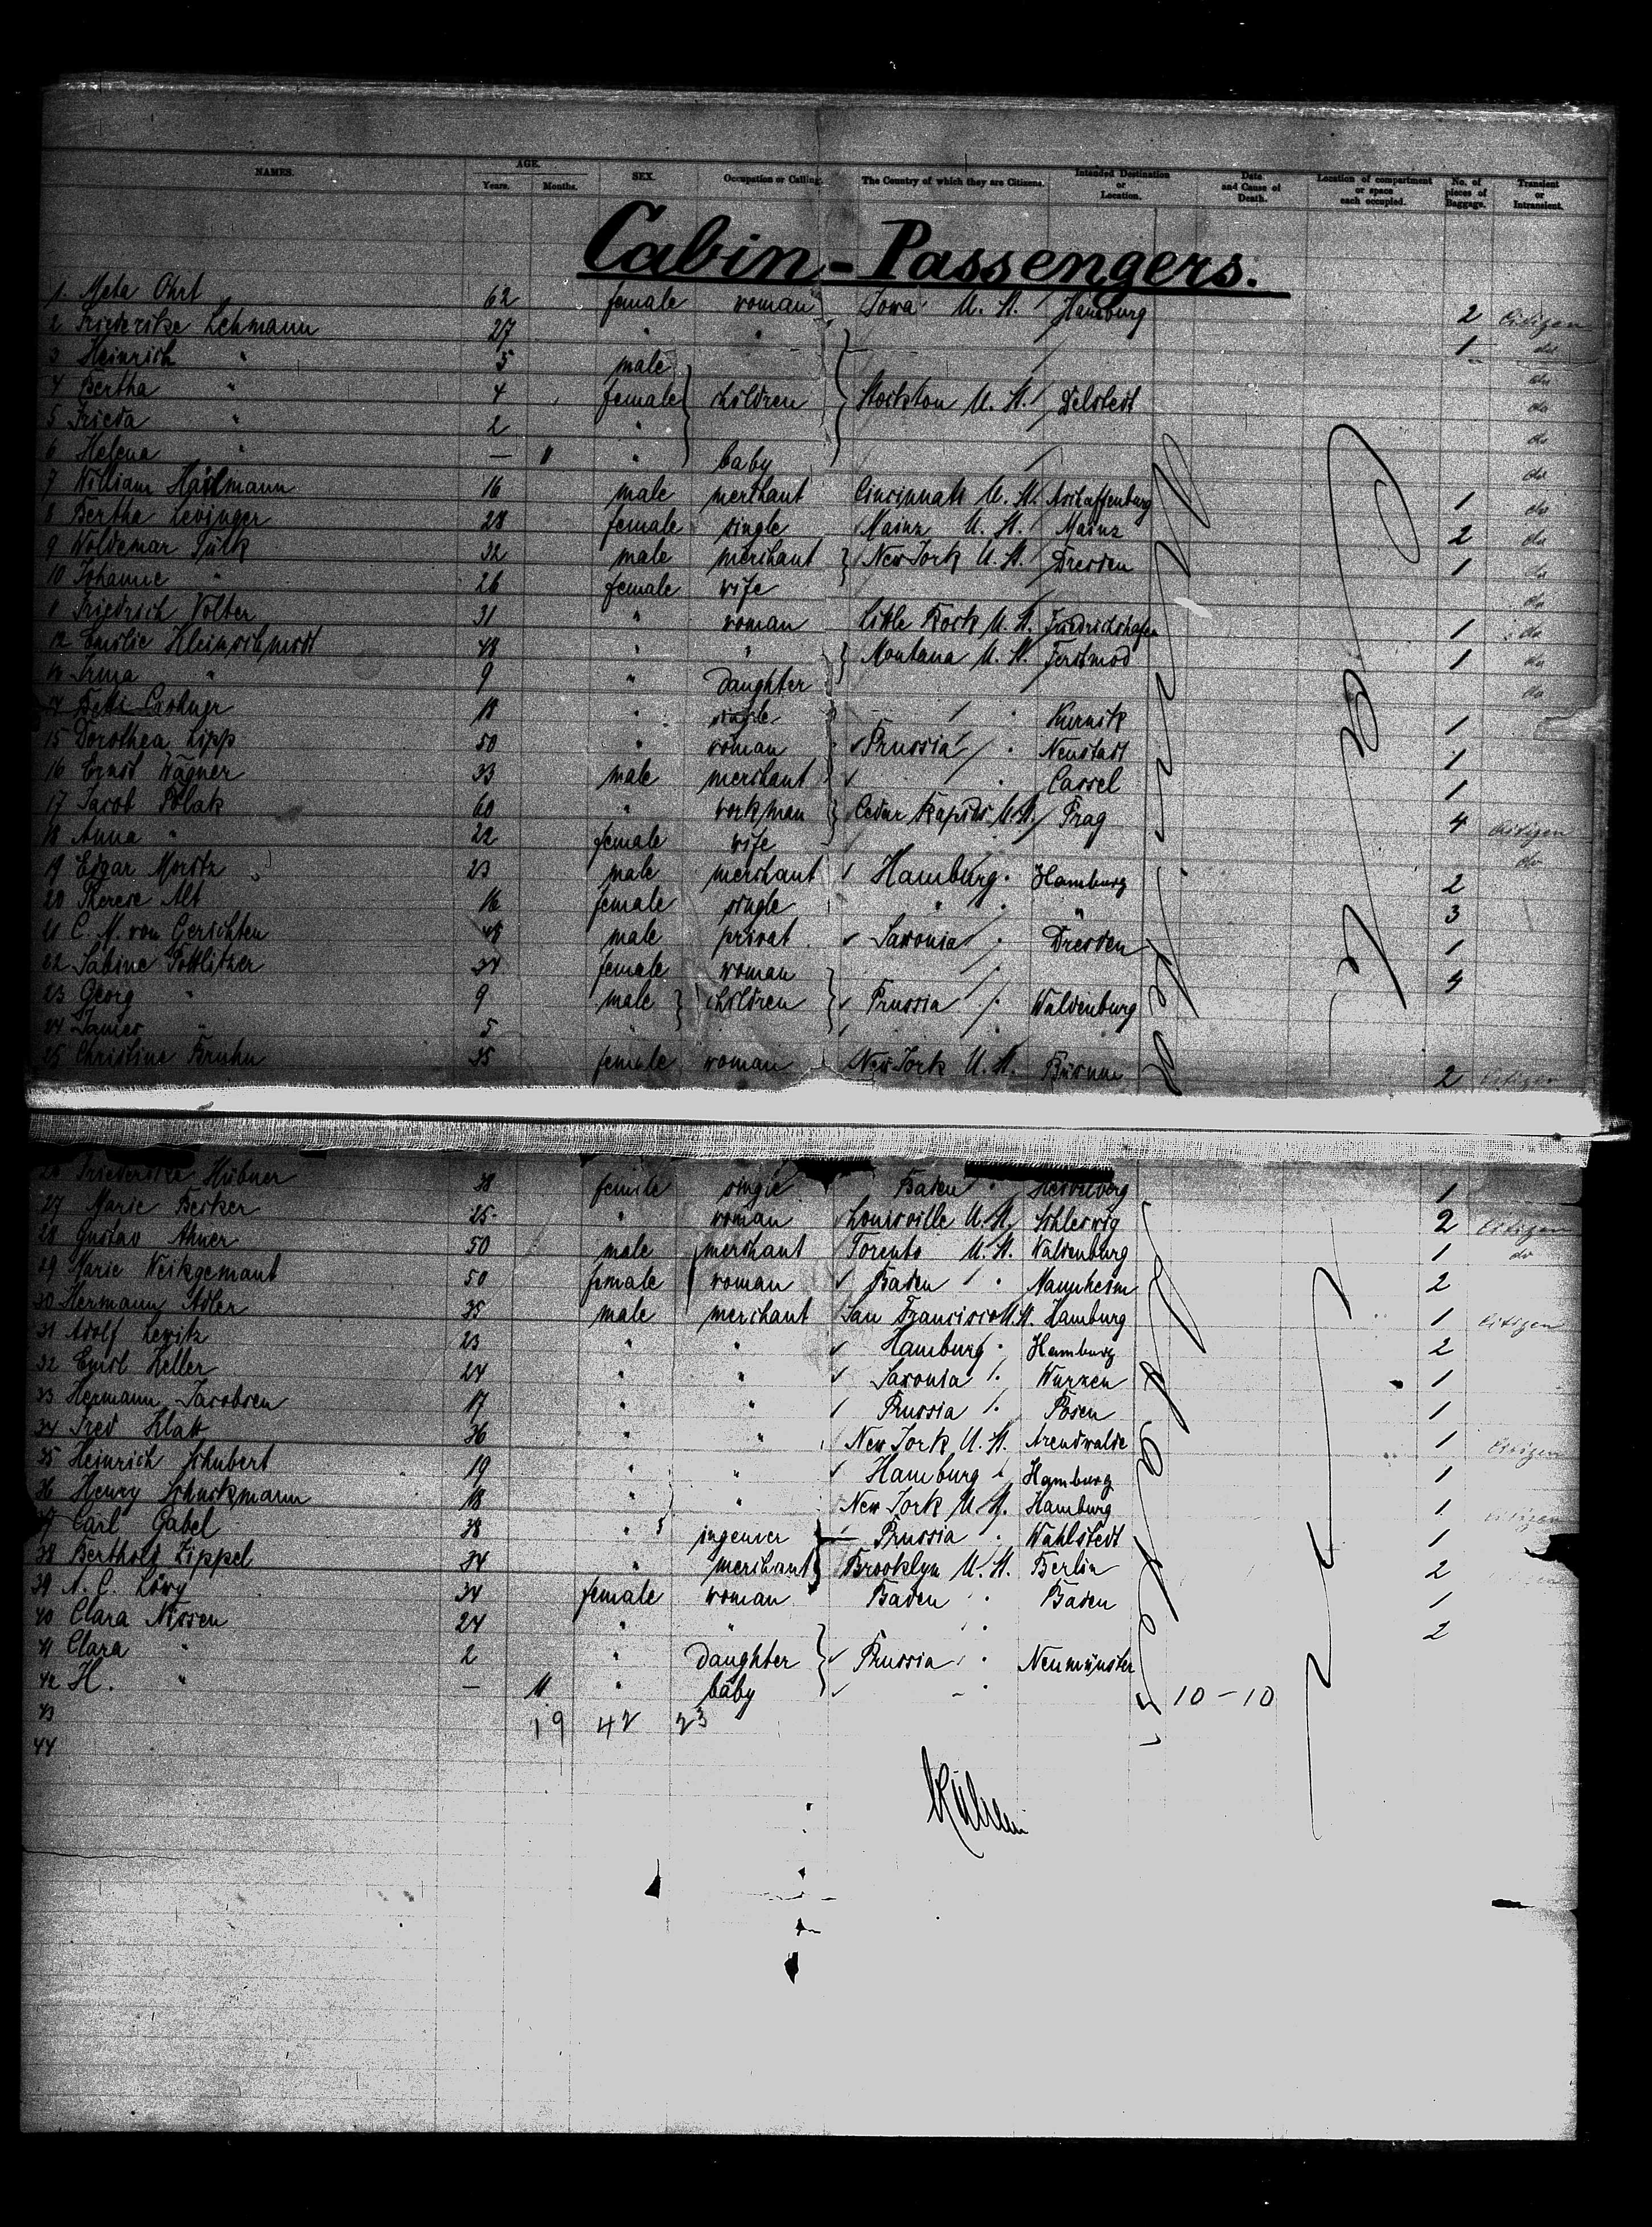 NAMES. AGE. SEX. Occupation or Calling. The Country of which they are Citizens. Intended Destination or Location. Date and Cause of Death. Location of compartment or space each occupied. No. of pieces of Baggage. Transient or Intransient.
Years. Months.
Cabin-Passengers.
1. Meta Ohrt 62 female woman Iowa U. St. Hamburg 2 Citizen
2 Friederike Lehmann 27 " " 1 do
3 Heinrich " 5 male do
4 Bertha " 4 female children Stockton U. St. Delstedt do
5 Frieda " 2 " do
6 Helena " — 11 " baby do
7 William Hailmann 16 male merchant Cincinnati U. St. Aschaffenburg 1 do
8 Bertha Levinger 28 female single Mainz U. St. Mainz 2 do
9 Woldemar Türk 32 male merchant New York U. St. Dresden 1 do
10 Johanne " 26 female wife do
11 Friedrich Volter 31 " woman Little Rock U. St. Friedrichshafen 1 do
12 Emilie Kleinschmidt 48 " " Montana U. St. 1 do
13 Irma " 9 " daughter do
14 18 " single " Kurnik 1
15 Dorothea Lipp 50 " woman Prussia " Neustadt 1
16 Ernst Wagner 33 male merchant " Cassel 1
17 Jacob Polak 60 " workman Cedar Rapids U. St. Prag 4 Citizen
18 Anna " 22 female wife do
19 Edgar Moritz 23 male merchant Hamburg Hamburg 2
20 Therese Alt 16 female single " " 3
21 C. A. von Gerichten 48 male privat Saxonia Dresden 1
22 Sabine Pottlitzer 34 female woman 4
23 Georg " 9 male children Prussia Waldenburg
24 James " 5 "
25 Christine Bruhn 35 female woman New York U. St. Büsum 2 Citizen
26 Friederike Hübner 38 female single Baden Heidelberg 1
27 Marie Becker 25 " woman Louisville U. St. Schleswig 2 Citizen
28 Gustav Ahner 50 male merchant Toronto U. St. Waldenburg 1 do
29 Marie Weikgemant 50 female woman Baden Mannheim 2
30 Hermann Adler 35 male merchant San Francisco U. St. Hamburg 1 Citizen
31 Adolf Lewitz 23 " " Hamburg Hamburg 2
32 Emil Keller 24 " " Saxonia Wurzen 1
33 Hermann Jacobsen 17 " " Prussia Posen 1
34 Fred Klatt 36 " " New York U. St. Arendwalde 1 Citizen
35 Heinrich Schubert 19 " " Hamburg Hamburg 1
36 Henry Schuckmann 18 " " New York U. St. Hamburg 1 citizen
37 Carl Gabel 38 " ingenier Prussia Wahlstedt 1
38 Berthold Zippel 34 " merchant Brooklyn U. St. Berlin 2
39 A. C. Löwy 34 female woman Baden Baden 1
40 Clara Nissen 24 " " 2
41 Clara " 2 " daughter Prussia Neumünster
42 H. " — 11 " baby 10-10
43 19 42 23
44